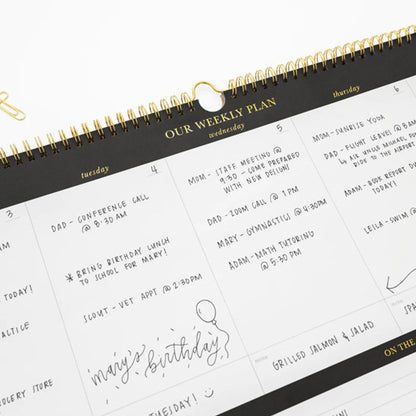 OUR WEEKLY PLAN
tuesday
wednesday
thursday
3
TODAY!
4
DAD - CONFERENCE CALL
@ 8:30 AM
* BRING BIRTHDAY LUNCH
TO SCHOOL FOR MARY!
SCOUT - VET APPT @ 2:30PM
mary's birthday
TUESDAY!
5
MOM - STAFF MEETING @
9:30 - COME PREPARED
WITH NEW DESIGN!
DAD - ZOOM CALL @ 1 PM
MARY - GYMNASTICS @ 4:30PM
ADAM - MATH TUTORING
@ 5:30 PM
GRILLED SALMON & SALAD
6
MOM - SUNRISE YOGA
DAD - FLIGHT LEAVES @ 8AM
↳ AIR UNCLE MICHAEL FOR
RIDE TO THE AIRPORT
ADAM - BOOK REPORT DUE
TODAY!
LEILA - SWIM @
SPA
ON THE